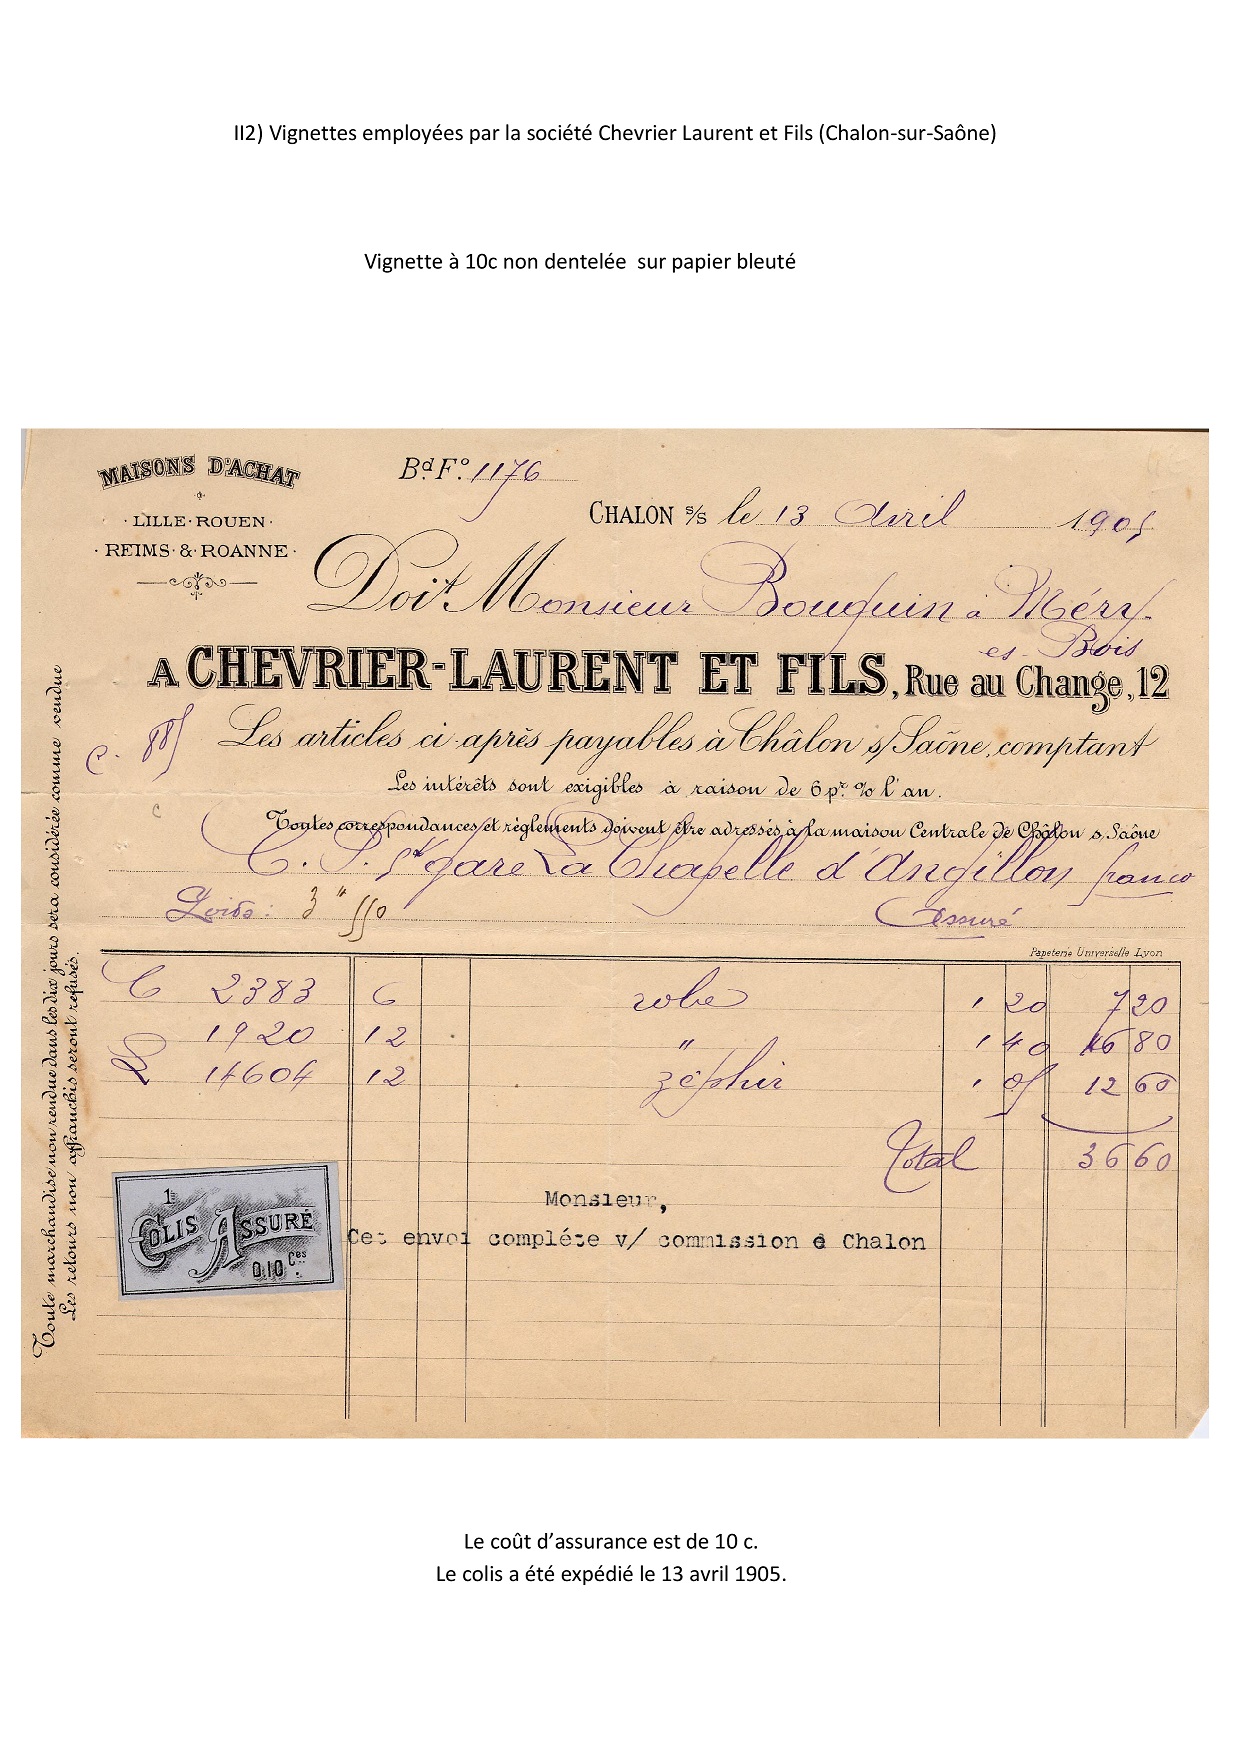 II2) Vignettes employées par la société Chevrier Laurent et Fils (Chalon-sur-Saône)
Vignette à 10c non dentelée sur papier bleuté
MAISONS D'ACHAT
· LILLE · ROUEN ·
· REIMS · & · ROANNE ·
Bd. Fo. 1176
CHALON s/s le 13 Avril 1905
Doit Monsieur Bouquin à Méry-
es-Bois
A CHEVRIER-LAURENT ET FILS, Rue au Change, 12
C. 885
Les articles ci-après payables à Châlon s/Saône, comptant
Les intérêts sont exigibles à raison de 6 pr. % l'an.
Toutes correspondances et règlements doivent être adressés à la maison Centrale de Châlon s/Saône
gare La Chapelle d'Angillon franco
Poids: 3" 550 Assuré
Papeterie Universelle Lyon
C 2383 6 robe 1 20 7 20
1920 12 " 1 40 16 80
L 14604 12 zéphir 1 05 12 60
Total 36 60
1
COLIS ASSURÉ
0.10 Ces
Monsieur,
Cet envoi complète v/ commission à Chalon
Toute marchandise non rendue dans les dix jours sera considérée comme vendue
Les retours non affranchis seront refusés.
Le coût d'assurance est de 10 c.
Le colis a été expédié le 13 avril 1905.